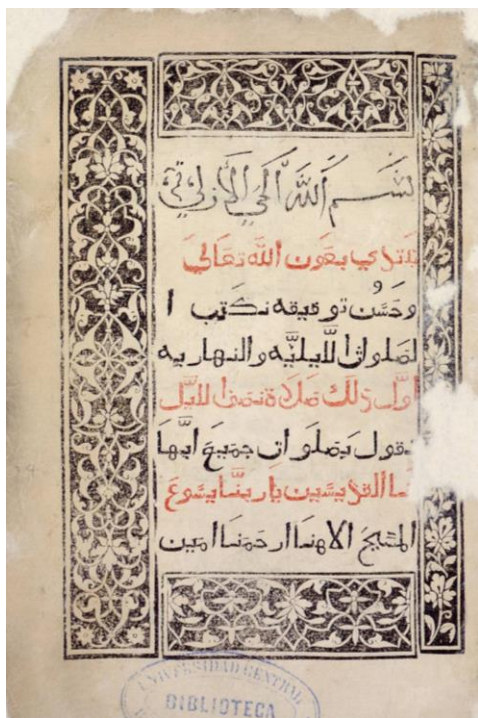 بسم الله الحي الازلي
نبتدي بعون الله تعالى
وحسن توفيقه نكتب ا
لصلواث الليليه والنهاريه
اول ذلك صلاة نصف الليل
نقول بصلوات جميع ابها
القديسين يا ربنا يشوع
المسيح الاهنا ارحمنا امين
UNIVERSIDAD CENTRAL
BIBLIOTECA